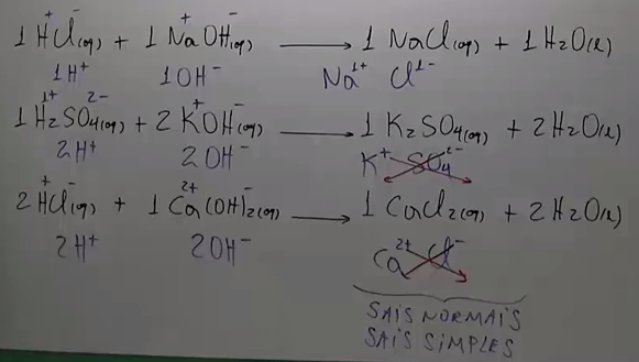 1 H⁺Cl⁻(aq) + 1 Na⁺OH⁻(aq) → 1 NaCl(aq) + 1 H₂O(l)
1H⁺ 1OH⁻ Na¹⁺ Cl¹⁻
1 H₂¹⁺SO₄²⁻(aq) + 2 K⁺OH⁻(aq) → 1 K₂SO₄(aq) + 2 H₂O(l)
2H⁺ 2OH⁻ K⁺ SO₄²⁻
2 H⁺Cl⁻(aq) + 1 Ca²⁺(OH)⁻₂(aq) → 1 CaCl₂(aq) + 2 H₂O(l)
2H⁺ 2OH⁻ Ca²⁺ Cl⁻
SAIS NORMAIS
SAIS SIMPLES